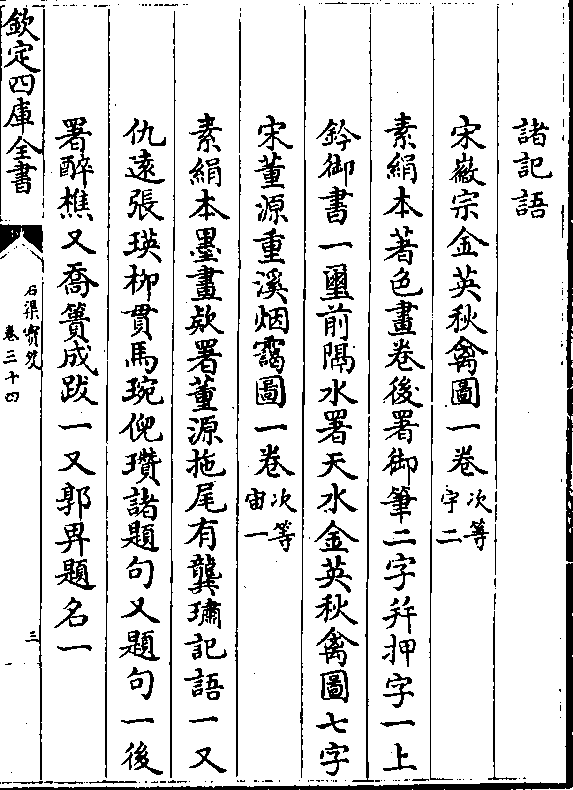 諸記語
宋徽宗金英秋禽圖一卷次等宇二
素絹本著色畫卷後署御筆二字幷押字一上
鈐御書一璽前隔水署天水金英秋禽圖七字
宋董源重溪烟靄圖一卷次等宙一
素絹本墨畫欵署董源拖尾有龔璛記語一又
仇遠張瑛柳貫馬琬倪瓚諸題句又題句一後
署醉樵又喬簣成跋一又郭畀題名一
欽定四庫全書
石渠寶笈
卷三十四
三